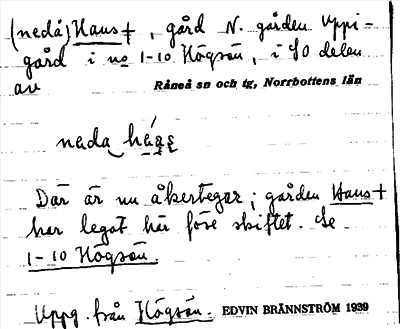 (nedå) Haus +, gård N. gården Uppi-
gård i no 1-10 Högsön, i SO delen
av
Råneå sn och tg, Norrbottens län
neda
Där är nu åkertegar; gården Haus +
har legat här före skiftet. Se
1-10 Högsön.
Uppg. från Högsön. EDVIN BRÄNNSTRÖM 1939